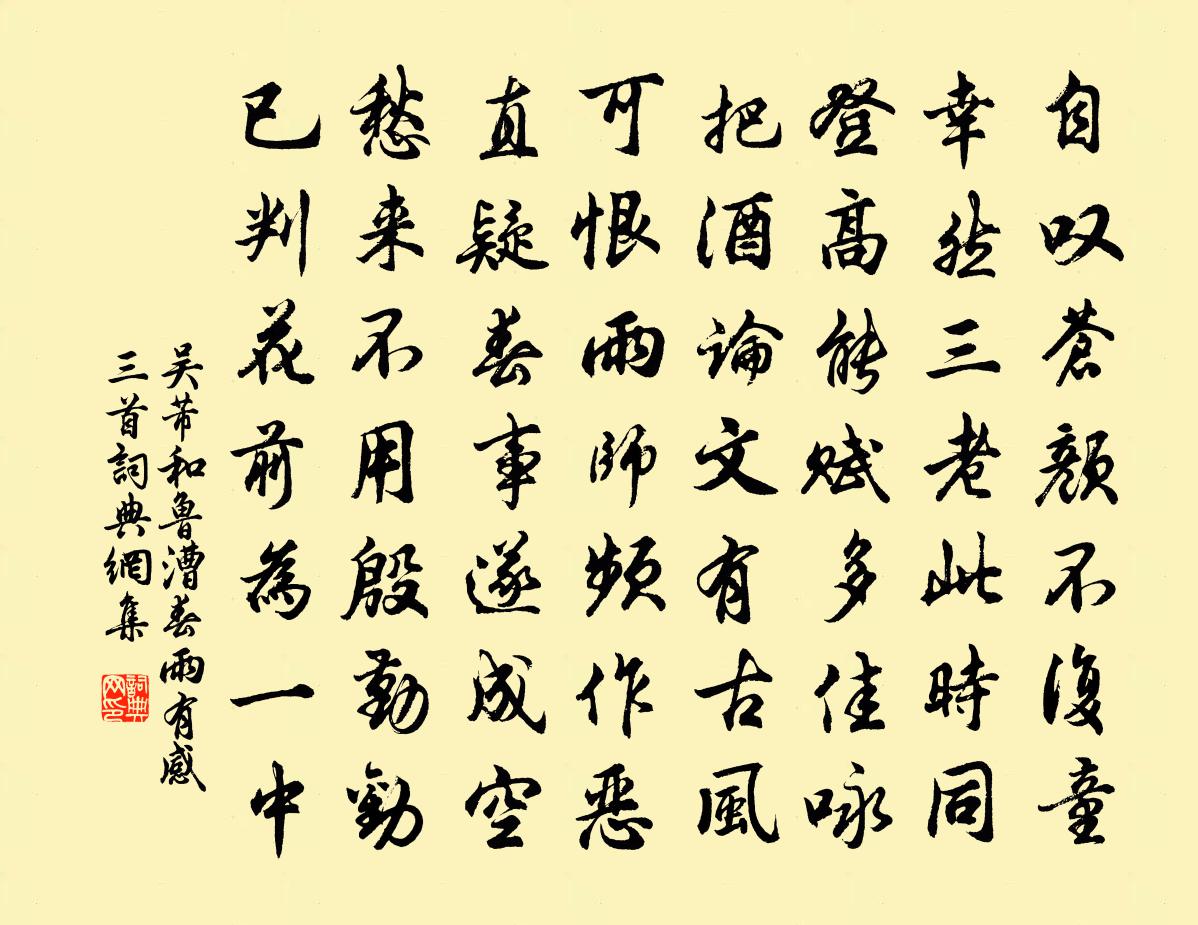 自叹苍顔不復童
幸然三老此時同
登高能赋多佳咏
把酒論文有古風
可恨雨師频作恶
直疑春事遂成空
愁来不用殷勤勸
已判花前為一中
吴芾和魯漕春雨有感
三首詞典網集
詞典网印